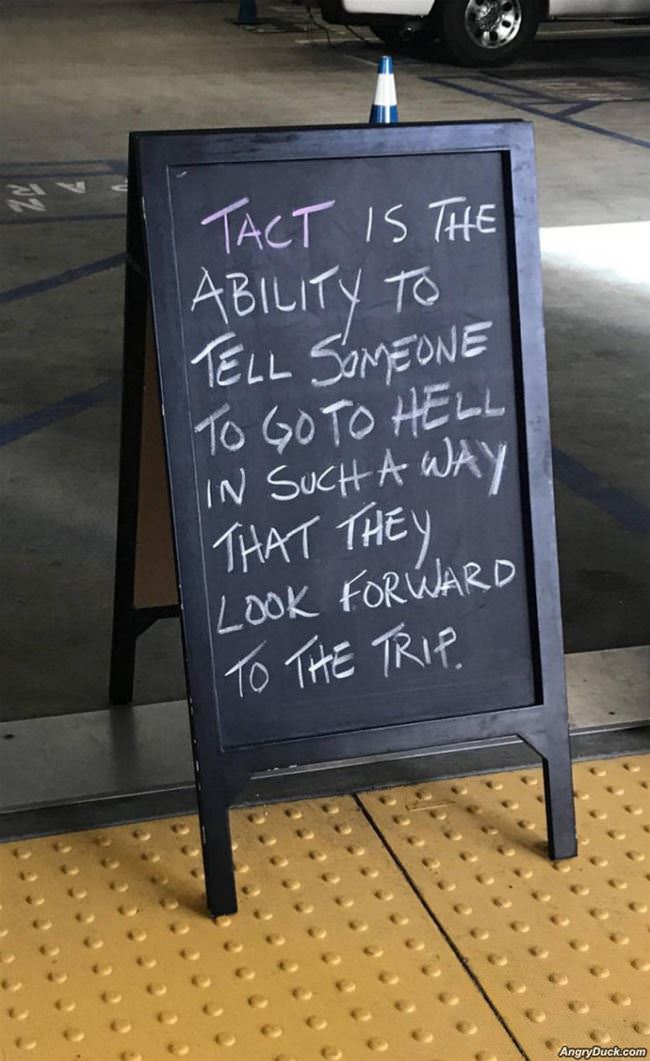 TACT IS THE
ABILITY TO
TELL SOMEONE
TO GO TO HELL
IN SUCH A WAY
THAT THEY
LOOK FORWARD
TO THE TRIP.
AngryDuck.com